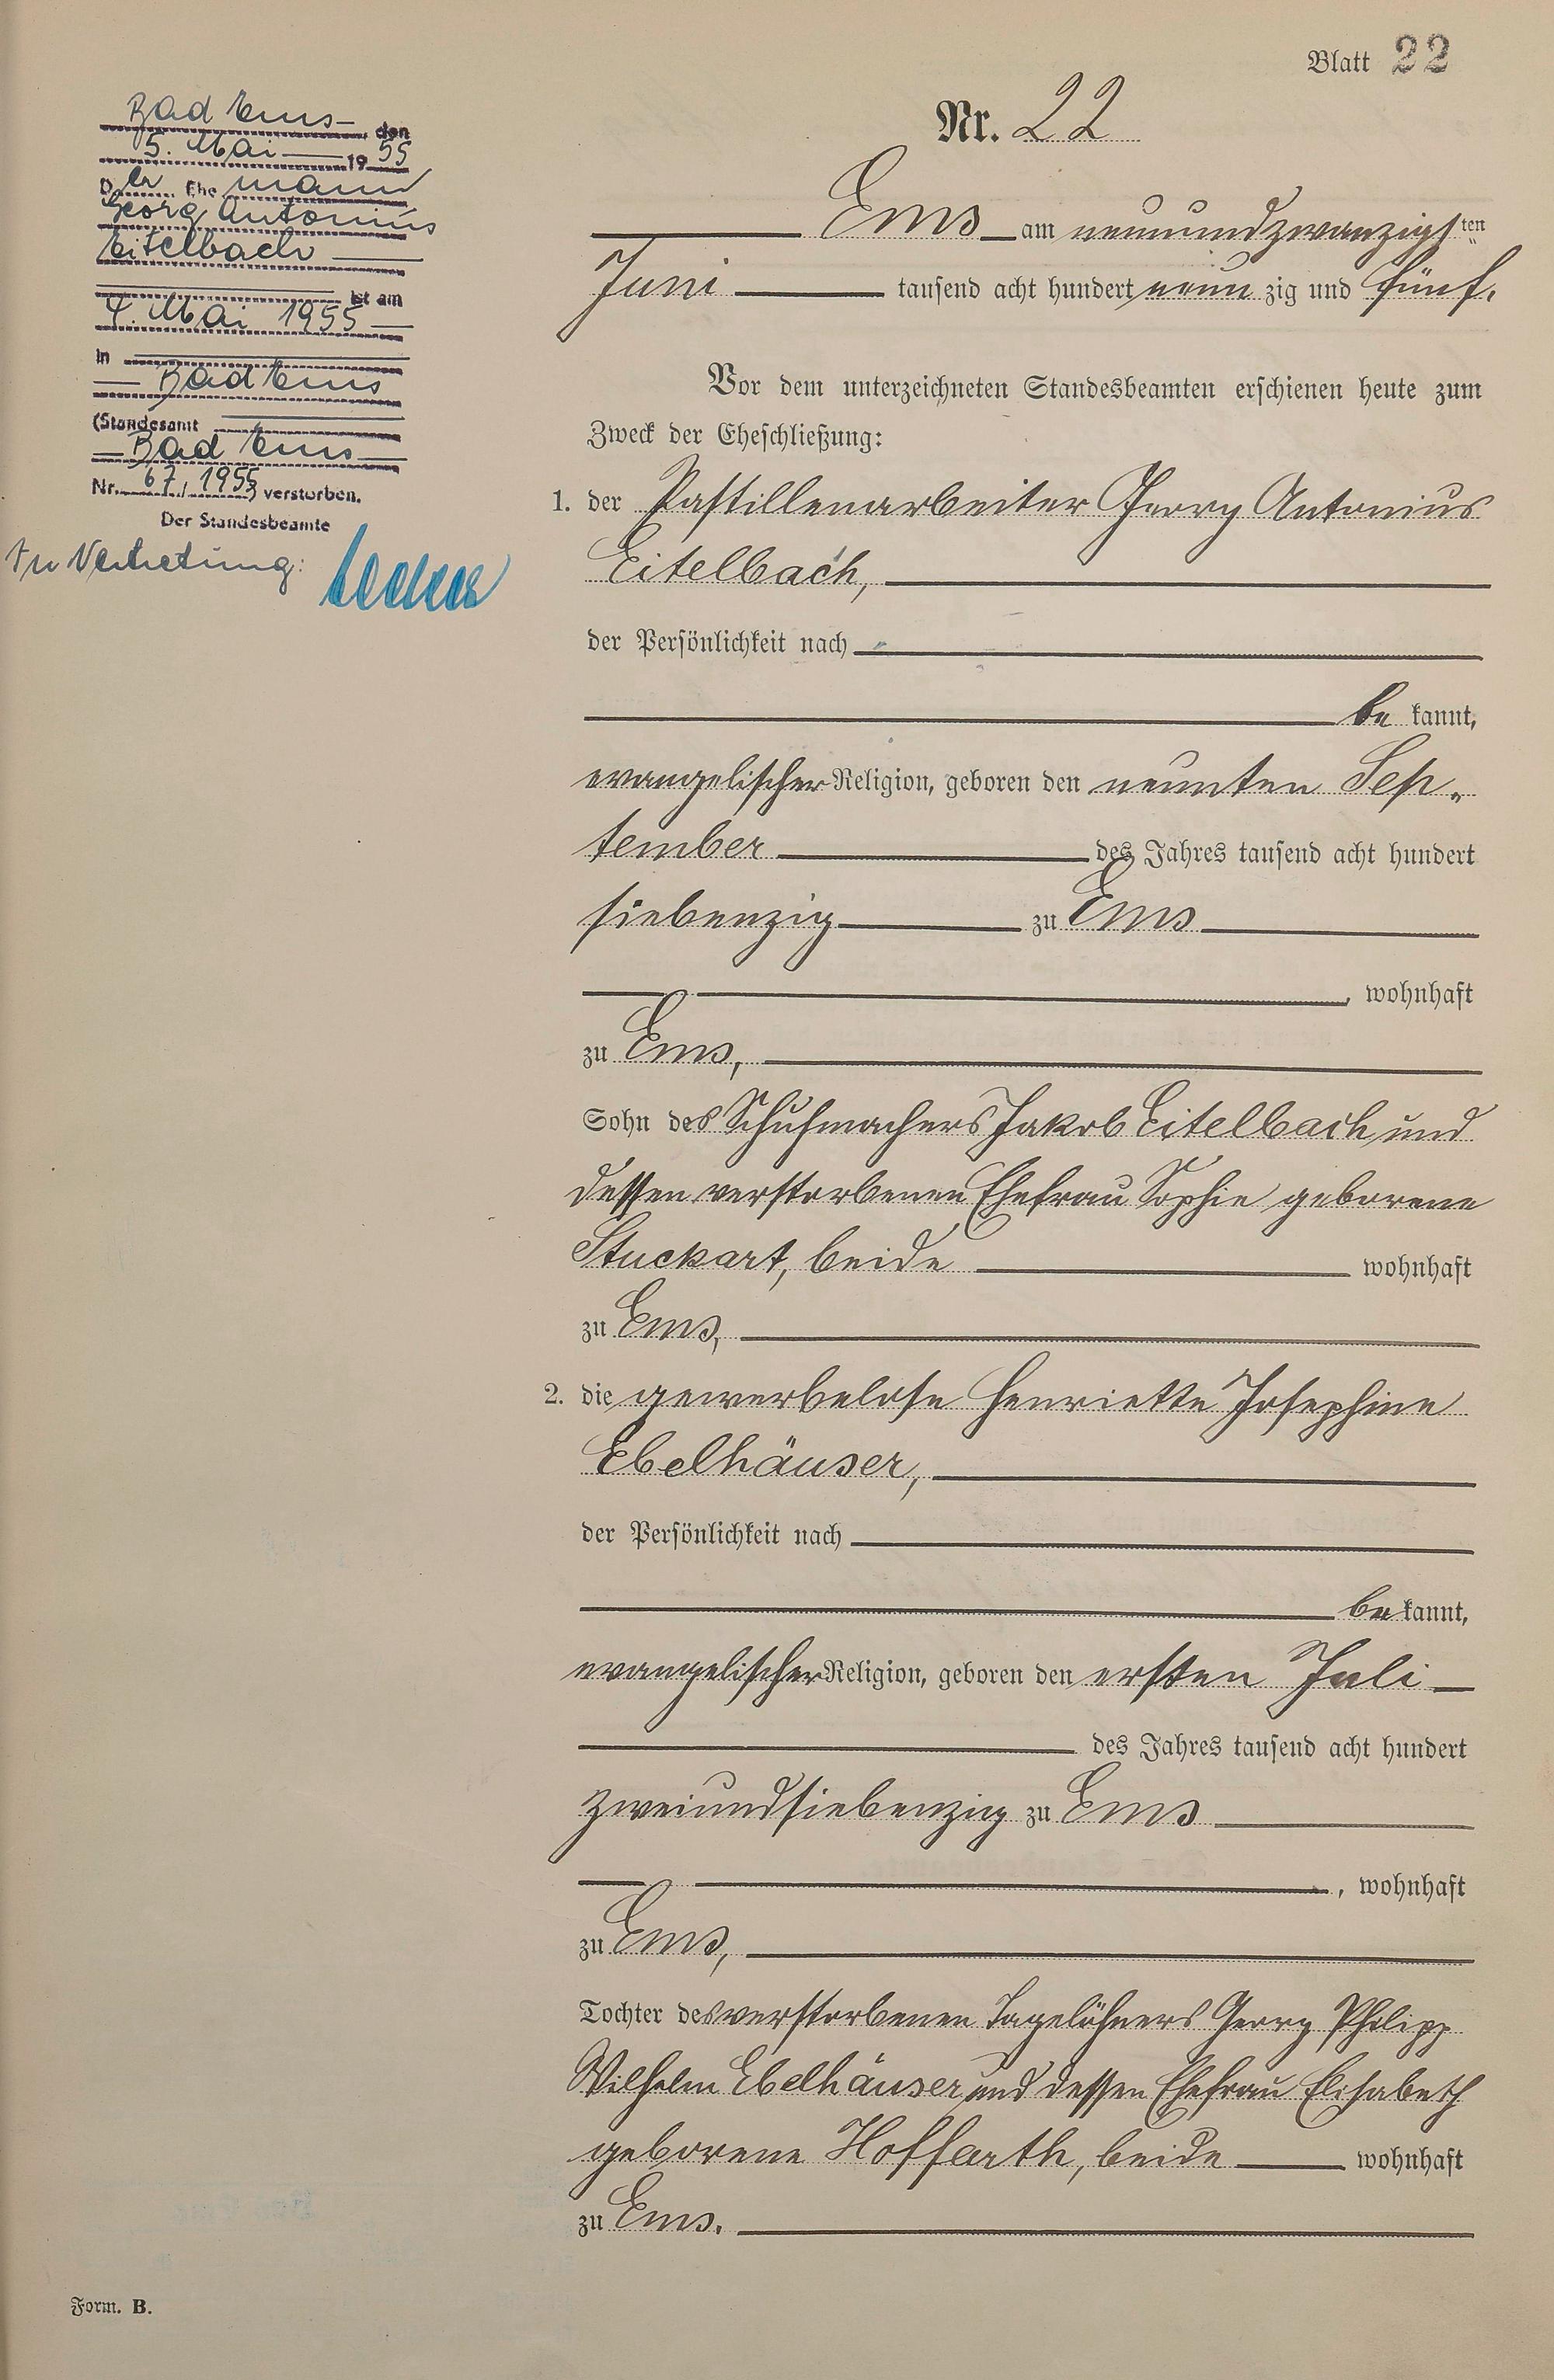 Blatt 22
Nr. 22
Bad Ems
den
5. Mai 1955
Der Ehemann
Georg Antonius
Eitelbach
ist am
4. Mai 1955
in
Bad Ems
(Standesamt
Bad Ems
Nr. 67/1955) verstorben.
Der Standesbeamte
In Vertretung:
Ems am neunundzwanzigsten
Juni tausend acht hundert neunzig und fünf.
Vor dem unterzeichneten Standesbeamten erschienen heute zum
Zweck der Eheschließung:
1. der Pastillenarbeiter Georg Antonius
Eitelbach,
der Persönlichkeit nach
bekannt,
evangelischer Religion, geboren den neunten Sep-
tember des Jahres tausend acht hundert
siebenzig zu Ems
, wohnhaft
zu Ems,
Sohn des Schuhmachers Jakob Eitelbach und
dessen verstorbenen Ehefrau Sophie geborene
Stuckart, beide wohnhaft
zu Ems,
2. die gewerbelose Henriette Josephine
Ebelhäuser,
der Persönlichkeit nach
bekannt,
evangelischer Religion, geboren den ersten Juli
des Jahres tausend acht hundert
zweiundsiebenzig zu Ems
, wohnhaft
zu Ems,
Tochter des verstorbenen Tagelöhners Georg Philipp
Wilhelm Ebelhäuser und dessen Ehefrau Elisabeth
geborene Hoffarth, beide wohnhaft
zu Ems.
Form. B.